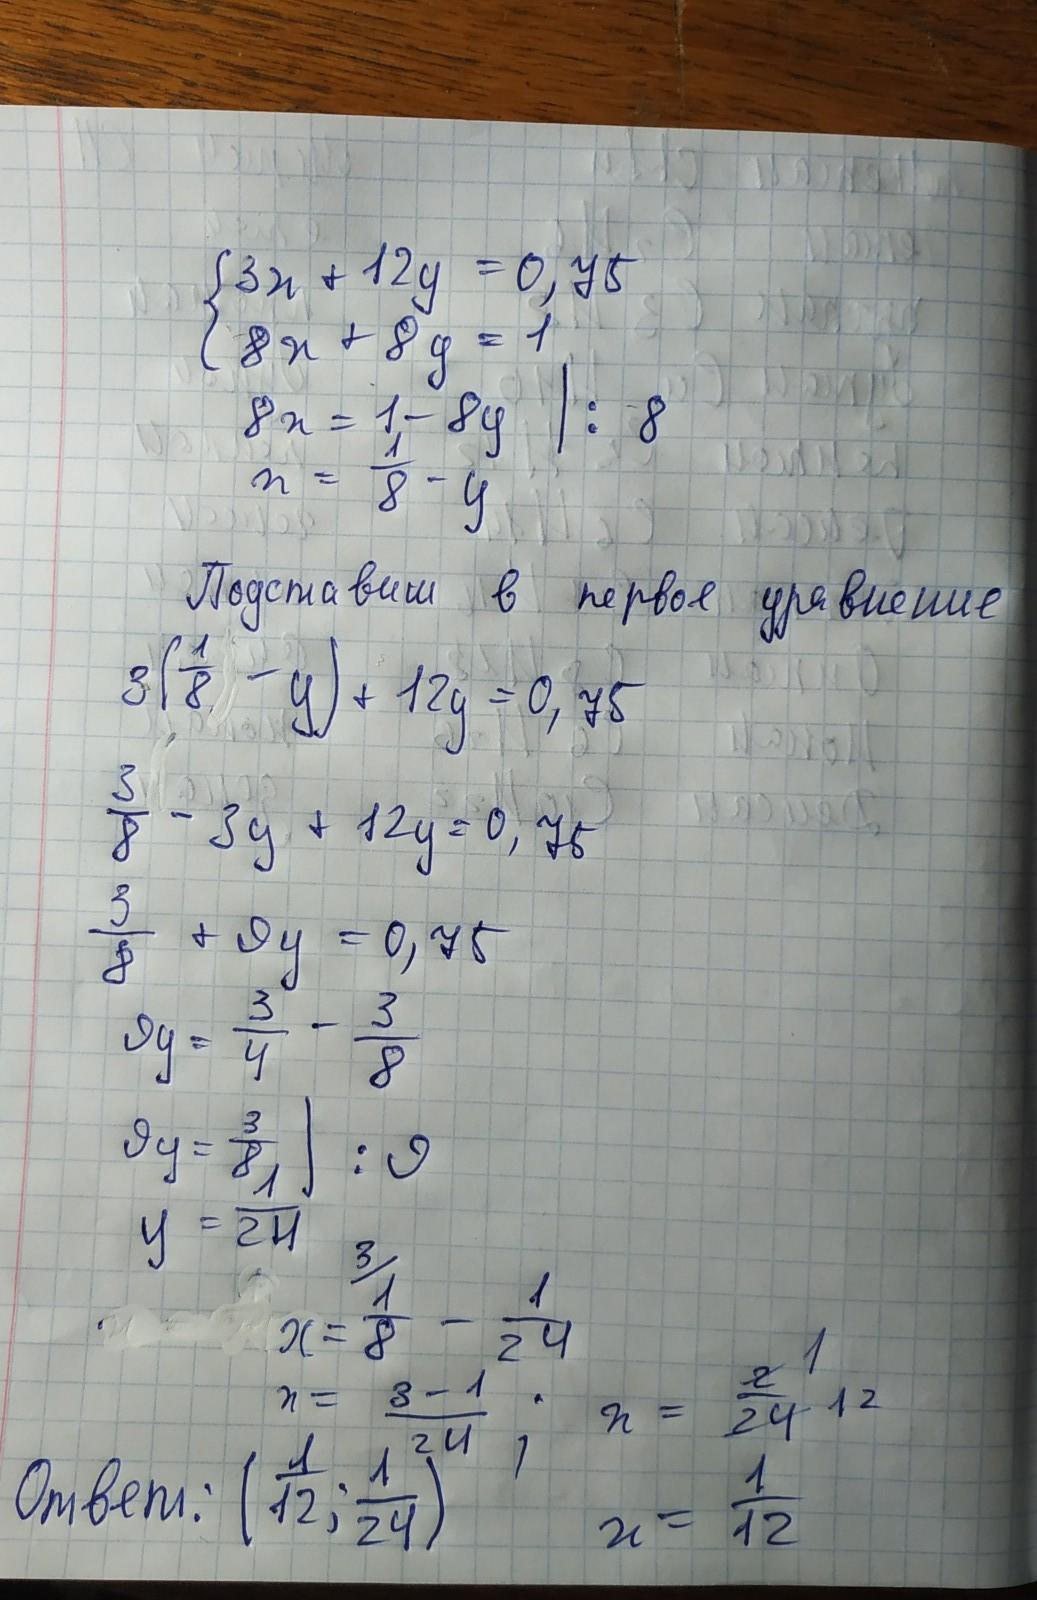 {3x + 12y = 0,75
8x + 8y = 1
8x = 1 - 8y | : 8
x = 1/8 - y
Подставим в первое уравнение
3(1/8 - y) + 12y = 0,75
3/8 - 3y + 12y = 0,75
3/8 + 9y = 0,75
9y = 3/4 - 3/8
9y = 3/8 | : 9
y = 1/24
x = 3/ 1/8 - 1/24
x = 3-1/24 ; x = 2/24 1 12
Ответ: (1/12; 1/24) x = 1/12